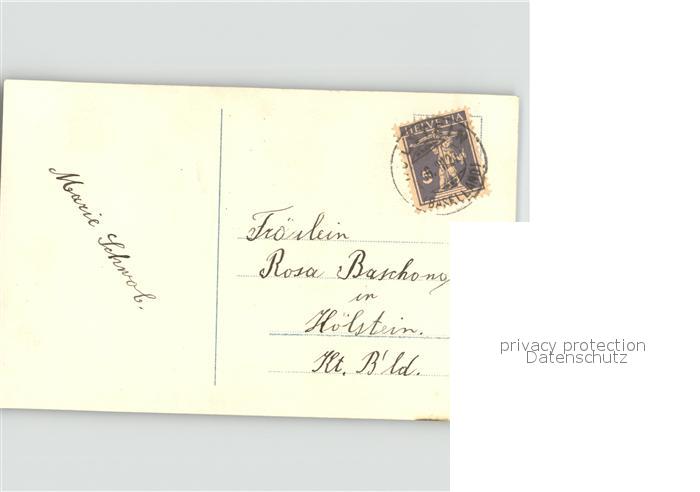 HELVETIA
Marie Schwob.
Fräulein
Rosa Baschong
in
Hölstein.
Kt. B'ld.
privacy protection
Datenschutz